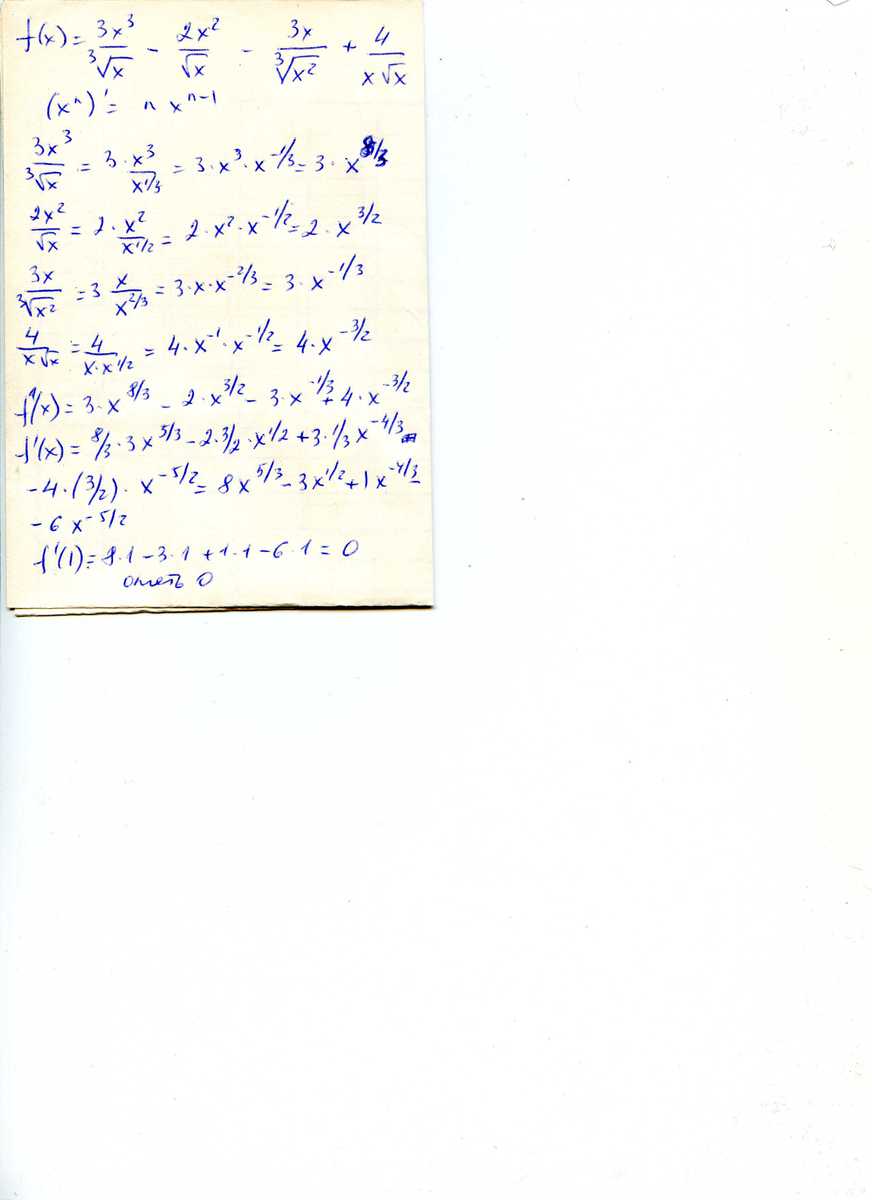 f(x) = 3x³/∛x − 2x²/√x − 3x/∛x² + 4/(x√x)
(xⁿ)' = n xⁿ⁻¹
3x³/∛x = 3 · x³/x^(1/3) = 3 · x³ · x^(-1/3) = 3 · x^(8/3)
2x²/√x = 2 · x²/x^(1/2) = 2 · x² · x^(-1/2) = 2 · x^(3/2)
3x/∛x² = 3 x/x^(2/3) = 3 · x · x^(-2/3) = 3 · x^(-1/3)
4/(x√x) = 4/(x · x^(1/2)) = 4 · x^(-1) · x^(-1/2) = 4 · x^(-3/2)
f(x) = 3 · x^(8/3) − 2 · x^(3/2) − 3 · x^(-1/3) + 4 · x^(-3/2)
f'(x) = 8/3 · 3x^(5/3) − 2 · 3/2 · x^(1/2) + 3 · 1/3 x^(-4/3)
− 4 · (3/2) · x^(-5/2) = 8x^(5/3) − 3x^(1/2) + 1x^(-4/3) −
− 6 x^(-5/2)
f'(1) = 8·1 − 3·1 + 1·1 − 6·1 = 0
ответь 0